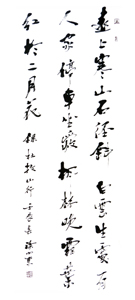 遠上寒山石徑斜白雲生處有
人家停車坐愛楓林晚霜葉
紅於二月花 錄杜牧山行